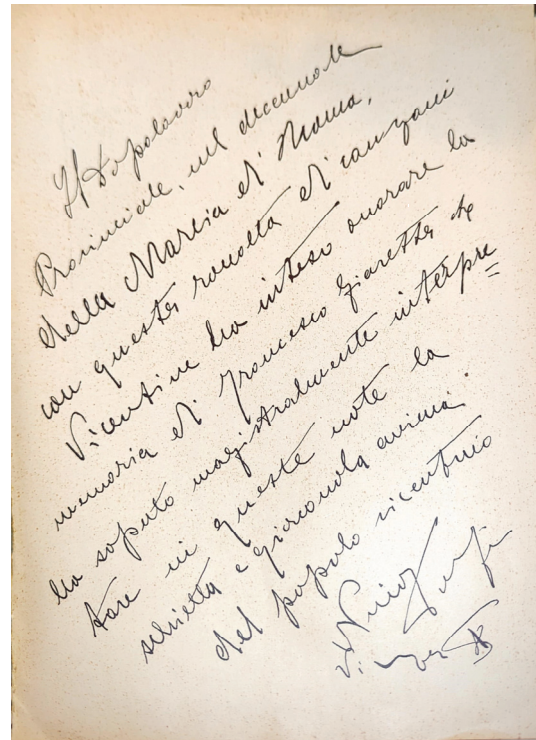 Il Dopolavoro
Provinciale, nel decennale
della Marcia di Roma,
con questa raccolta di canzoni
Vicentine ha inteso onorare la
memoria di Francesco Giaretta che
ha saputo magistralmente interpre
tare in queste note la
schietta e gioconda anima
del popolo vicentino